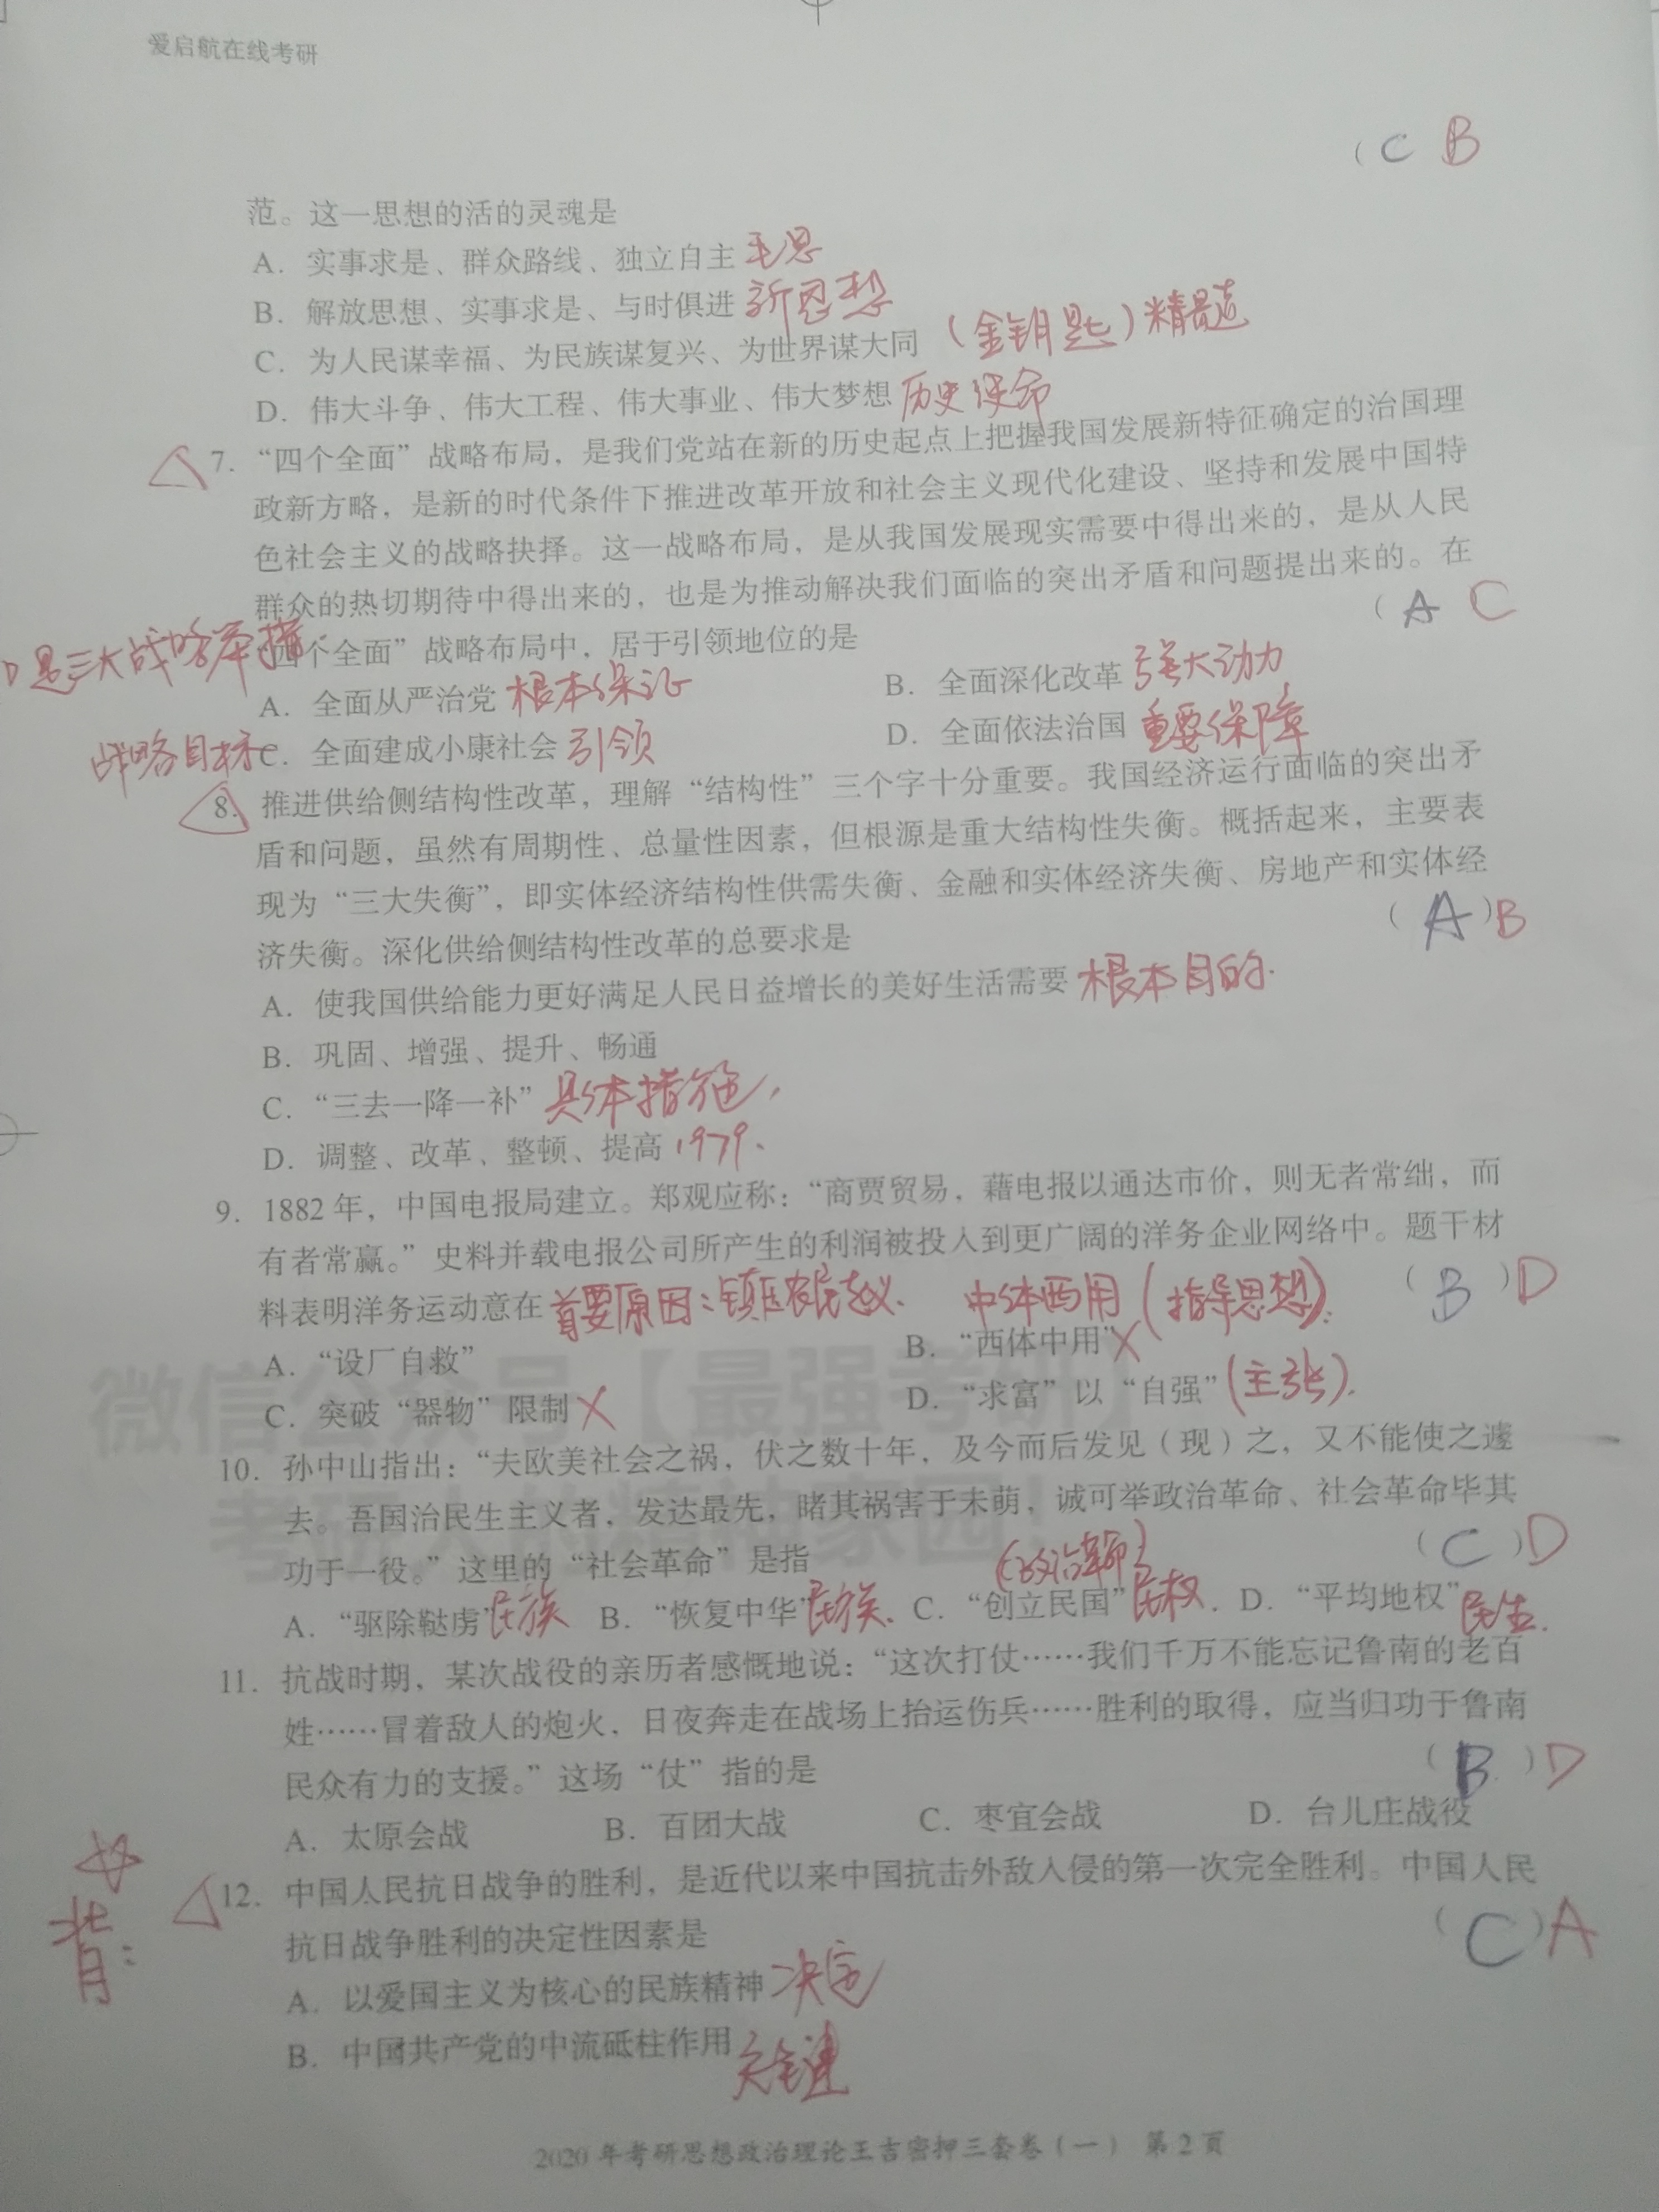 爱启航在线考研
（ C B
范。这一思想的活的灵魂是
A. 实事求是、群众路线、独立自主 毛思
B. 解放思想、实事求是、与时俱进 新思想
C. 为人民谋幸福、为民族谋复兴、为世界谋大同 （金钥匙）精髓
D. 伟大斗争、伟大工程、伟大事业、伟大梦想 历史使命
7. “四个全面”战略布局，是我们党站在新的历史起点上把握我国发展新特征确定的治国理
政新方略，是新的时代条件下推进改革开放和社会主义现代化建设、坚持和发展中国特
色社会主义的战略抉择。这一战略布局，是从我国发展现实需要中得出来的，是从人民
群众的热切期待中得出来的，也是为推动解决我们面临的突出矛盾和问题提出来的。在
“四个全面”战略布局中，居于引领地位的是 （ A C
是三大战略举措
A. 全面从严治党 根本保证 B. 全面深化改革 强大动力
战略目标 C. 全面建成小康社会 引领 D. 全面依法治国 重要保障
8. 推进供给侧结构性改革，理解“结构性”三个字十分重要。我国经济运行面临的突出矛
盾和问题，虽然有周期性、总量性因素，但根源是重大结构性失衡。概括起来，主要表
现为“三大失衡”，即实体经济结构性供需失衡、金融和实体经济失衡、房地产和实体经
济失衡。深化供给侧结构性改革的总要求是 （ A ）B
A. 使我国供给能力更好满足人民日益增长的美好生活需要 根本目的.
B. 巩固、增强、提升、畅通
C. “三去一降一补” 具体措施，
D. 调整、改革、整顿、提高 1979、
9. 1882 年，中国电报局建立。郑观应称：“商贾贸易，藉电报以通达市价，则无者常绌，而
有者常赢。”史料并载电报公司所产生的利润被投入到更广阔的洋务企业网络中。题干材
料表明洋务运动意在 首要原因：镇压农民起义. 中体西用（指导思想）. （ B ）D
A. “设厂自救” B. “西体中用” X
C. 突破“器物”限制 X D. “求富”以“自强”（主张）.
微信公众号【最强考研】
考研人的精神家园！
10. 孙中山指出：“夫欧美社会之祸，伏之数十年，及今而后发见（现）之，又不能使之遽
去。吾国治民生主义者，发达最先，睹其祸害于未萌，诚可举政治革命、社会革命毕其
功于一役。”这里的“社会革命”是指 （政治革命） （ C ）D
A. “驱除鞑虏” 民族 B. “恢复中华” 民族. C. “创立民国” 民权. D. “平均地权” 民生.
11. 抗战时期，某次战役的亲历者感慨地说：“这次打仗……我们千万不能忘记鲁南的老百
姓……冒着敌人的炮火，日夜奔走在战场上抬运伤兵……胜利的取得，应当归功于鲁南
民众有力的支援。”这场“仗”指的是 （ B ）D
A. 太原会战 B. 百团大战 C. 枣宜会战 D. 台儿庄战役
背：
12. 中国人民抗日战争的胜利，是近代以来中国抗击外敌入侵的第一次完全胜利。中国人民
抗日战争胜利的决定性因素是 （ C ）A
A. 以爱国主义为核心的民族精神 决定
B. 中国共产党的中流砥柱作用 关键
2020 年考研思想政治理论王吉密押三套卷（一） 第 2 页